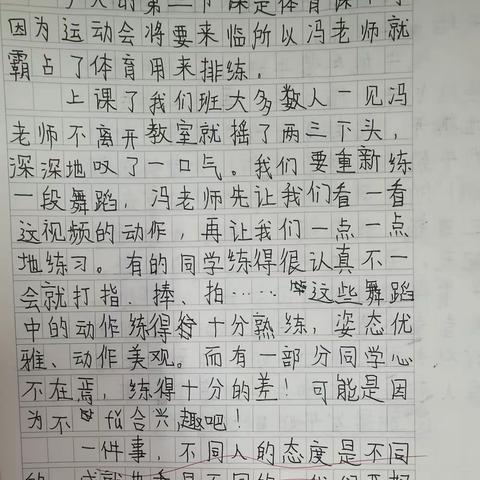 今天的第二节课是体育课，
因为运动会将要来临所以冯老师就
霸占了体育用来排练.
上课了我们班大多数人一见冯
老师不离开教室就摇了两三下头，
深深地叹了一口气。我们要重新练
一段舞蹈，冯老师先让我们看一看
这视频的动作，再让我们一点一点
地练习。有的同学练得很认真不一
会就打指、捧、拍……这些舞蹈
中的动作练得十分熟练，姿态优
雅、动作美观。而有一部分同学心
不在焉，练得十分的差！可能是因
为不fǔ合兴趣吧！
一件事，不同人的态度是不同
的，成就也是不同的